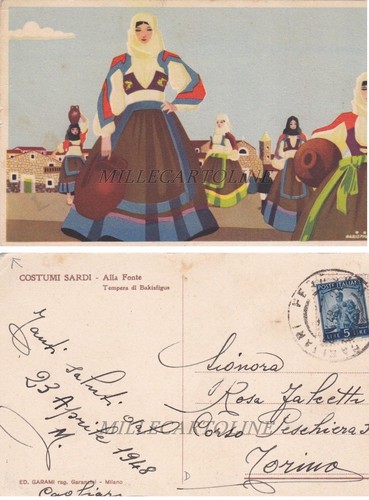 MILLECARTOLINE
COSTUMI SARDI - Alla Fonte
Tempera di Bakisfigus
POSTE ITALIANE
LIRE 5
Tanti Saluti
23 Aprile 1948
M.
Signora
Rosa Falcetti
MILLECARTOLINE
Corso Peschiera
Torino
ED. GARAMI rag. Garanzini - Milano
Cagliari